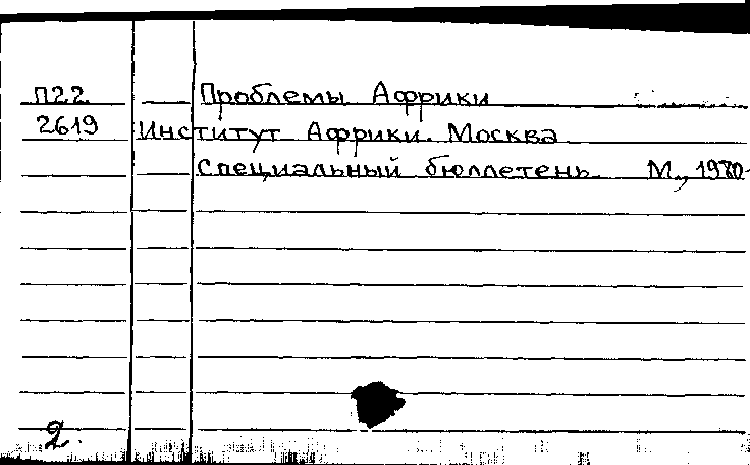 П22 Проблемы Африки
2619 Институт Африки. Москва
Специальный бюллетень. М., 1980-
2.